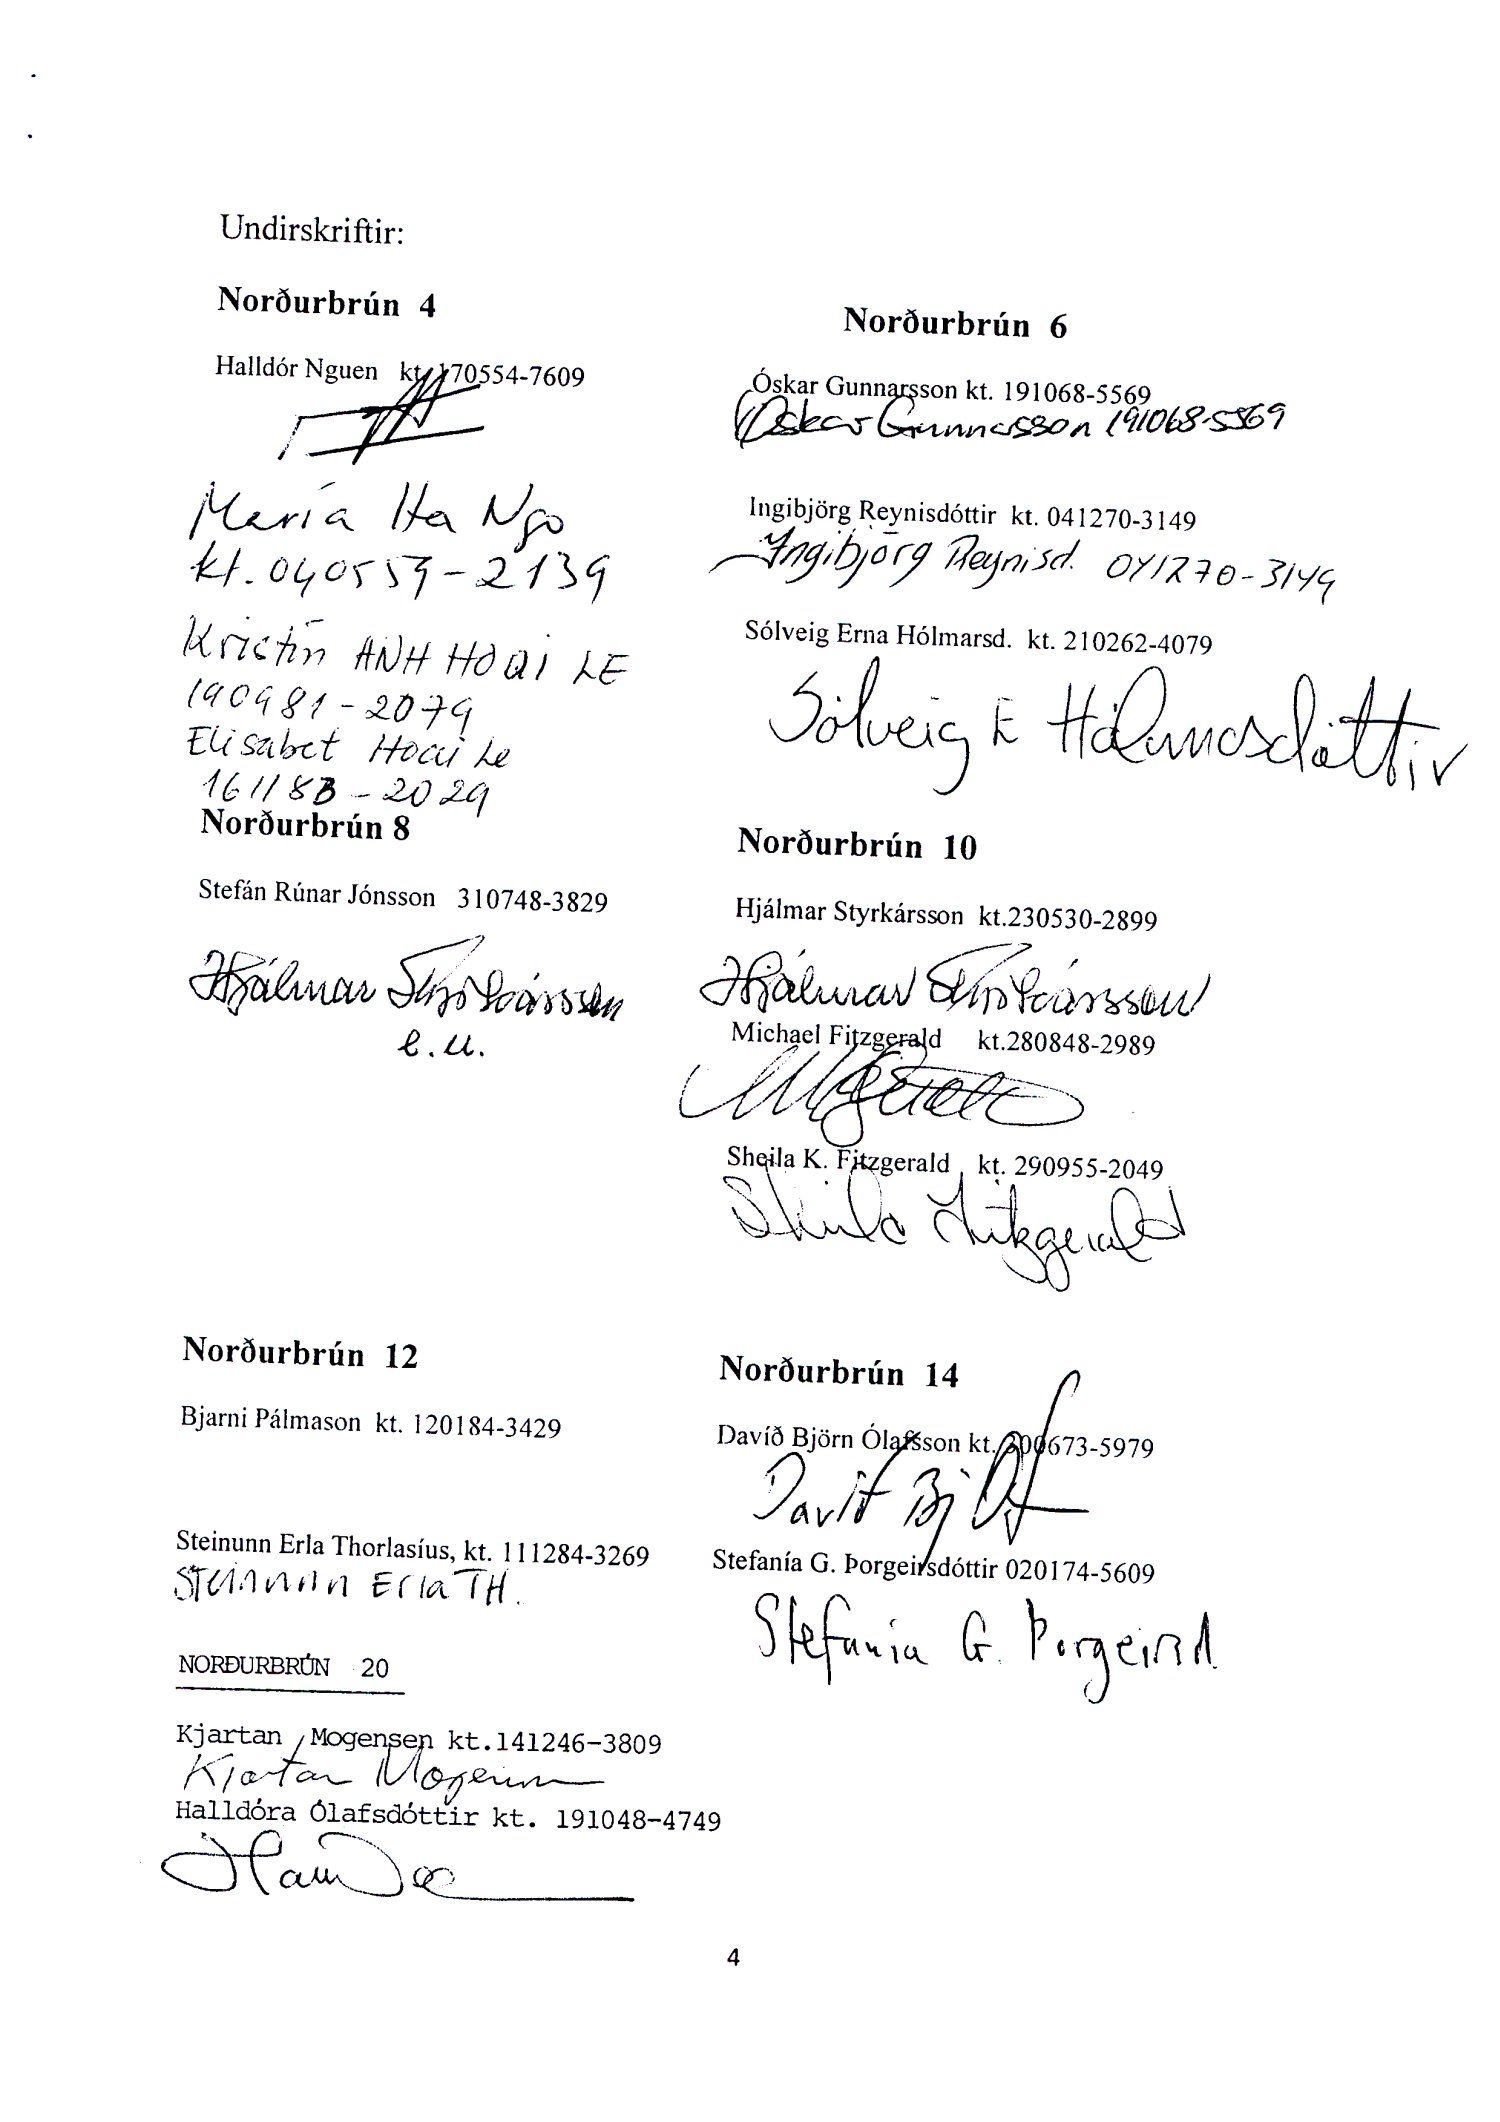 Undirskriftir:
Norðurbrún 4
Halldór Nguen kt. 170554-7609
María Ha Ngo
kt. 040559-2139
Kristín ANH HOAI LE
190981-2079
Elisabet Hoai Le
161183-2029
Norðurbrún 6
Óskar Gunnarsson kt. 191068-5569
Óskar Gunnarsson 191068-5569
Ingibjörg Reynisdóttir kt. 041270-3149
Ingibjörg Reynisd. 041270-3149
Sólveig Erna Hólmarsd. kt. 210262-4079
Sólveig E Hólmarsdóttir
Norðurbrún 8
Stefán Rúnar Jónsson 310748-3829
Hjálmar Styrkársson
e.u.
Norðurbrún 10
Hjálmar Styrkársson kt.230530-2899
Hjálmar Styrkársson
Michael Fitzgerald kt.280848-2989
Sheila K. Fitzgerald kt. 290955-2049
Sheila Fitzgerald
Norðurbrún 12
Bjarni Pálmason kt. 120184-3429
Steinunn Erla Thorlasíus, kt. 111284-3269
Steinunn Erla TH.
Norðurbrún 14
Davíð Björn Ólafsson kt. 300673-5979
Davíð Bj
Stefanía G. Þorgeirsdóttir 020174-5609
Stefanía G. Þorgeirsd.
NORÐURBRÚN 20
Kjartan Mogensen kt.141246-3809
Kjartan Mogensen
Halldóra Ólafsdóttir kt. 191048-4749
4